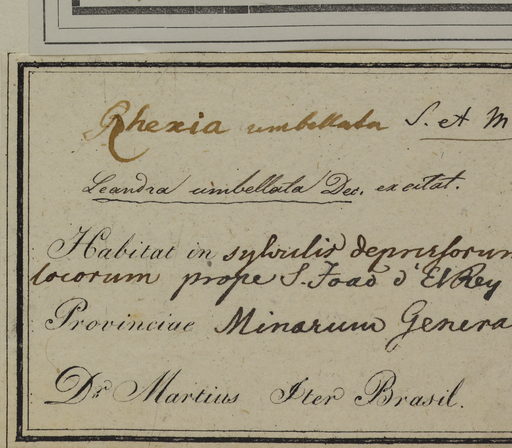 Rhexia umbellata S. et M
Leandra umbellata Dec. ex citat.
Habitat in sylvulis depressorum
locorum prope S. Joaô d'El Rey
Provinciae Minarum Genera
Dr. Martius Iter Brasil.